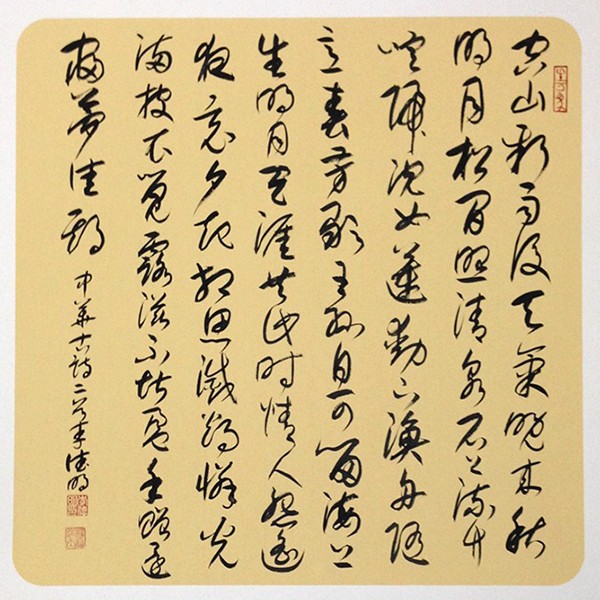 空山新雨後天氣晚來秋
明月松間照清泉石上流竹
喧歸浣女蓮動下漁舟隨
意春芳歇王孫自可留海上
生明月天涯共此時情人怨遙
夜竟夕起相思滅燭憐光
滿披衣覺露滋不堪盈手贈還
寢夢佳期
中華古詩二首李德明